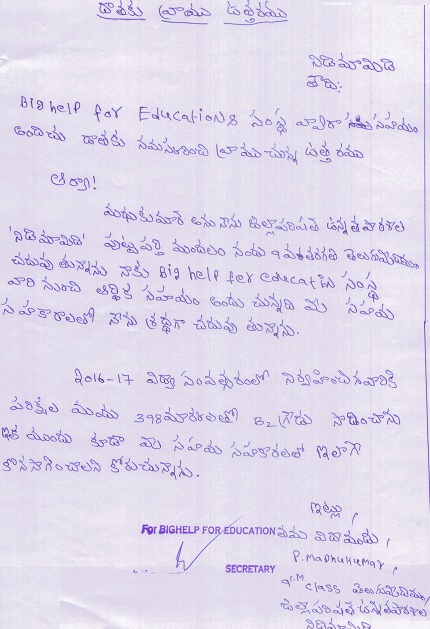 దాతకు వ్రాయు ఉత్తరము
నిడిమామిడి
తేది:
Big help for Education& సంస్థ ద్వారా సహాయం
అందించు దాతకు నమస్కరించి వ్రాయుచున్న ఉత్తరము
ఆర్యా!
మధుకుమార్ అను నేను జిల్లాపరిషత్ ఉన్నతపాఠశాల
'నిడిమామిడి' పుట్టపర్తి మండలం నందు 9వతరగతి తెలుగుమీడియం
చదువు తున్నాను నాకు Big help for education సంస్థ
వారి నుంచి ఆర్థిక సహాయం అందు చున్నది మీ సహాయ
సహకారాలతో నేను శ్రద్ధగా చదువు తున్నాను.
2016-17 విద్యా సంవత్సరంలో నిర్వహించిన వార్షిక
పరీక్షల యందు 398మార్కులతో B2 గ్రేడు సాధించాను
ఇక ముందు కూడా మీ సహాయ సహకారాలతో ఇలాగే
కొనసాగించాలని కోరుచున్నాను.
ఇట్లు,
For BIGHELP FOR EDUCATION తమ విధేయుడు,
P. Madhukumar,
SECRETARY
9th class తెలుగుమీడియం,
జిల్లాపరిషత్ ఉన్నతపాఠశాల
నిడిమామిడి